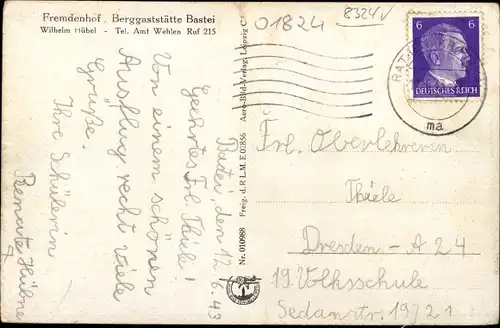 Fremdenhof, Berggaststätte Bastei
Wilhelm Hübel - Tel. Amt Wehlen Ruf 215
01824
8324
6 6
DEUTSCHES REICH
RAT
ma
Aero-Bild-Verlag Leipzig C
Freig. d. R L M E 01856
Nr. 010988
Batei, den 12.6.43
Geehrtes Frl. Thiele!
Von einem schönen
Ausflug recht viele
Grüße.
Ihre Schülerin
Renate Hübne
Frl. Oberlehreren
Thiele
Dresden-A 24
19. Volksschule
Sedanstr. 19/21